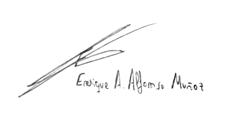 Enrique A. Alfonso Muñoz